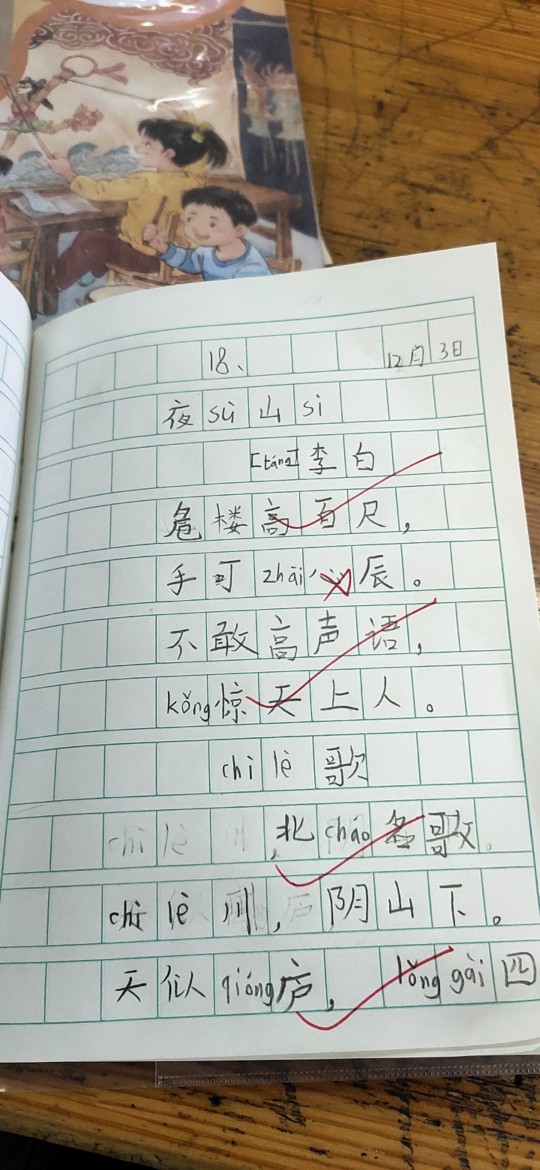 18、 12月3日
夜 sù 山 sì
[táng] 李白
危楼高百尺，
手可 zhāi 辰。
不敢高声语，
kǒng 惊天上人。
chì lè 歌
北 cháo 名歌
chì lè 川，阴山下。
天似 qióng 庐， lǒng gài 四